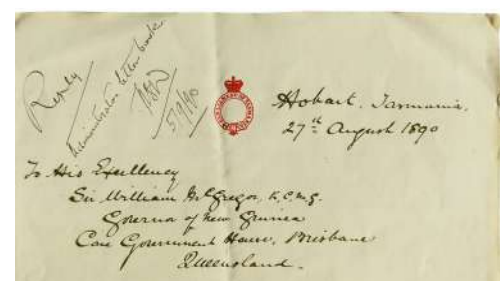 Reply
Administrator letter book
5/9/90
Hobart, Tasmania,
27th August 1890
To His Excellency
Sir William McGregor, K.C.M.G.
Governor of New Guinea
Care Government House, Brisbane
Queensland.